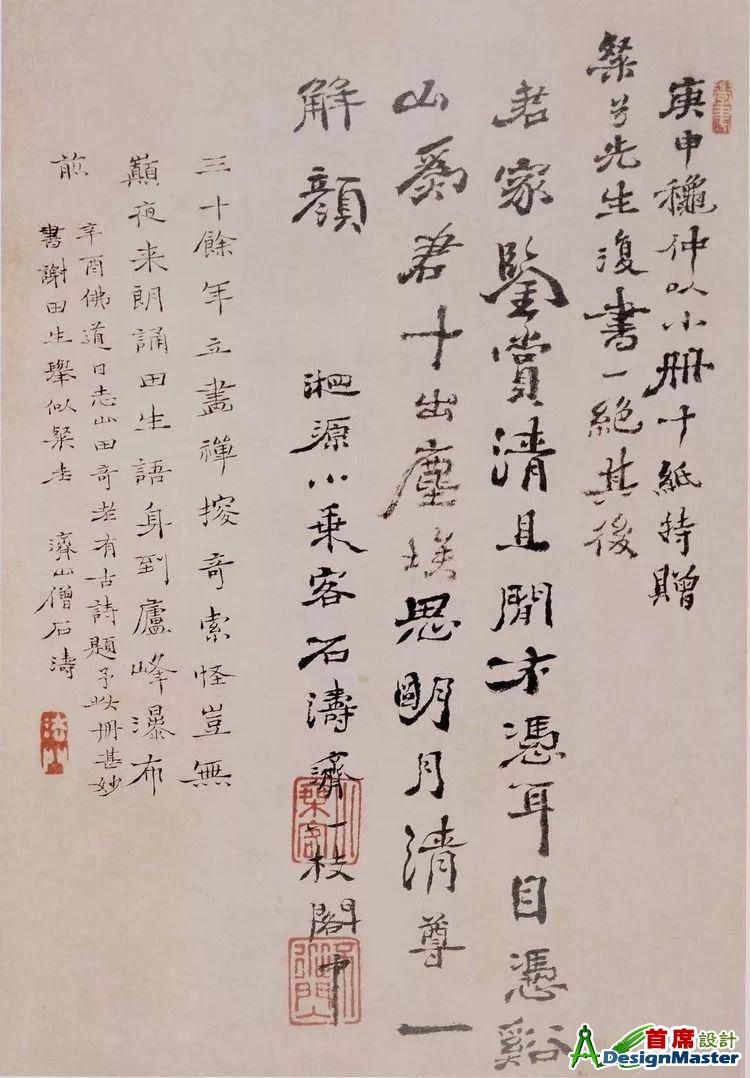 庚申穐仲以小冊十紙特贈
粲兮先生復書一絕其後
君家鑒賞清且閒不憑耳目憑谿
山爲君十出塵埃思明月清尊一
解顏
湘源小乘客石濤濟一枝閣中
三十餘年立畫禪搜奇索怪豈無
巔夜来朗誦田生語身到廬峰瀑布
前
辛酉佛道日志山田奇老有古詩題予此冊甚妙
書謝田生擧似粲老 濟山僧石濤
首席設計
ADesignMaster